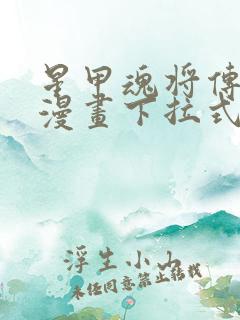 星甲魂将傳
漫畫下拉式
浮生小山
未经同意禁止转载